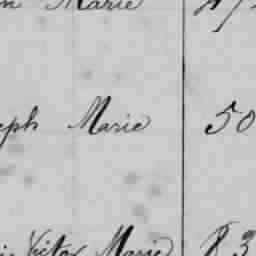 Marie
eph Marie 50
Victor Marie 83